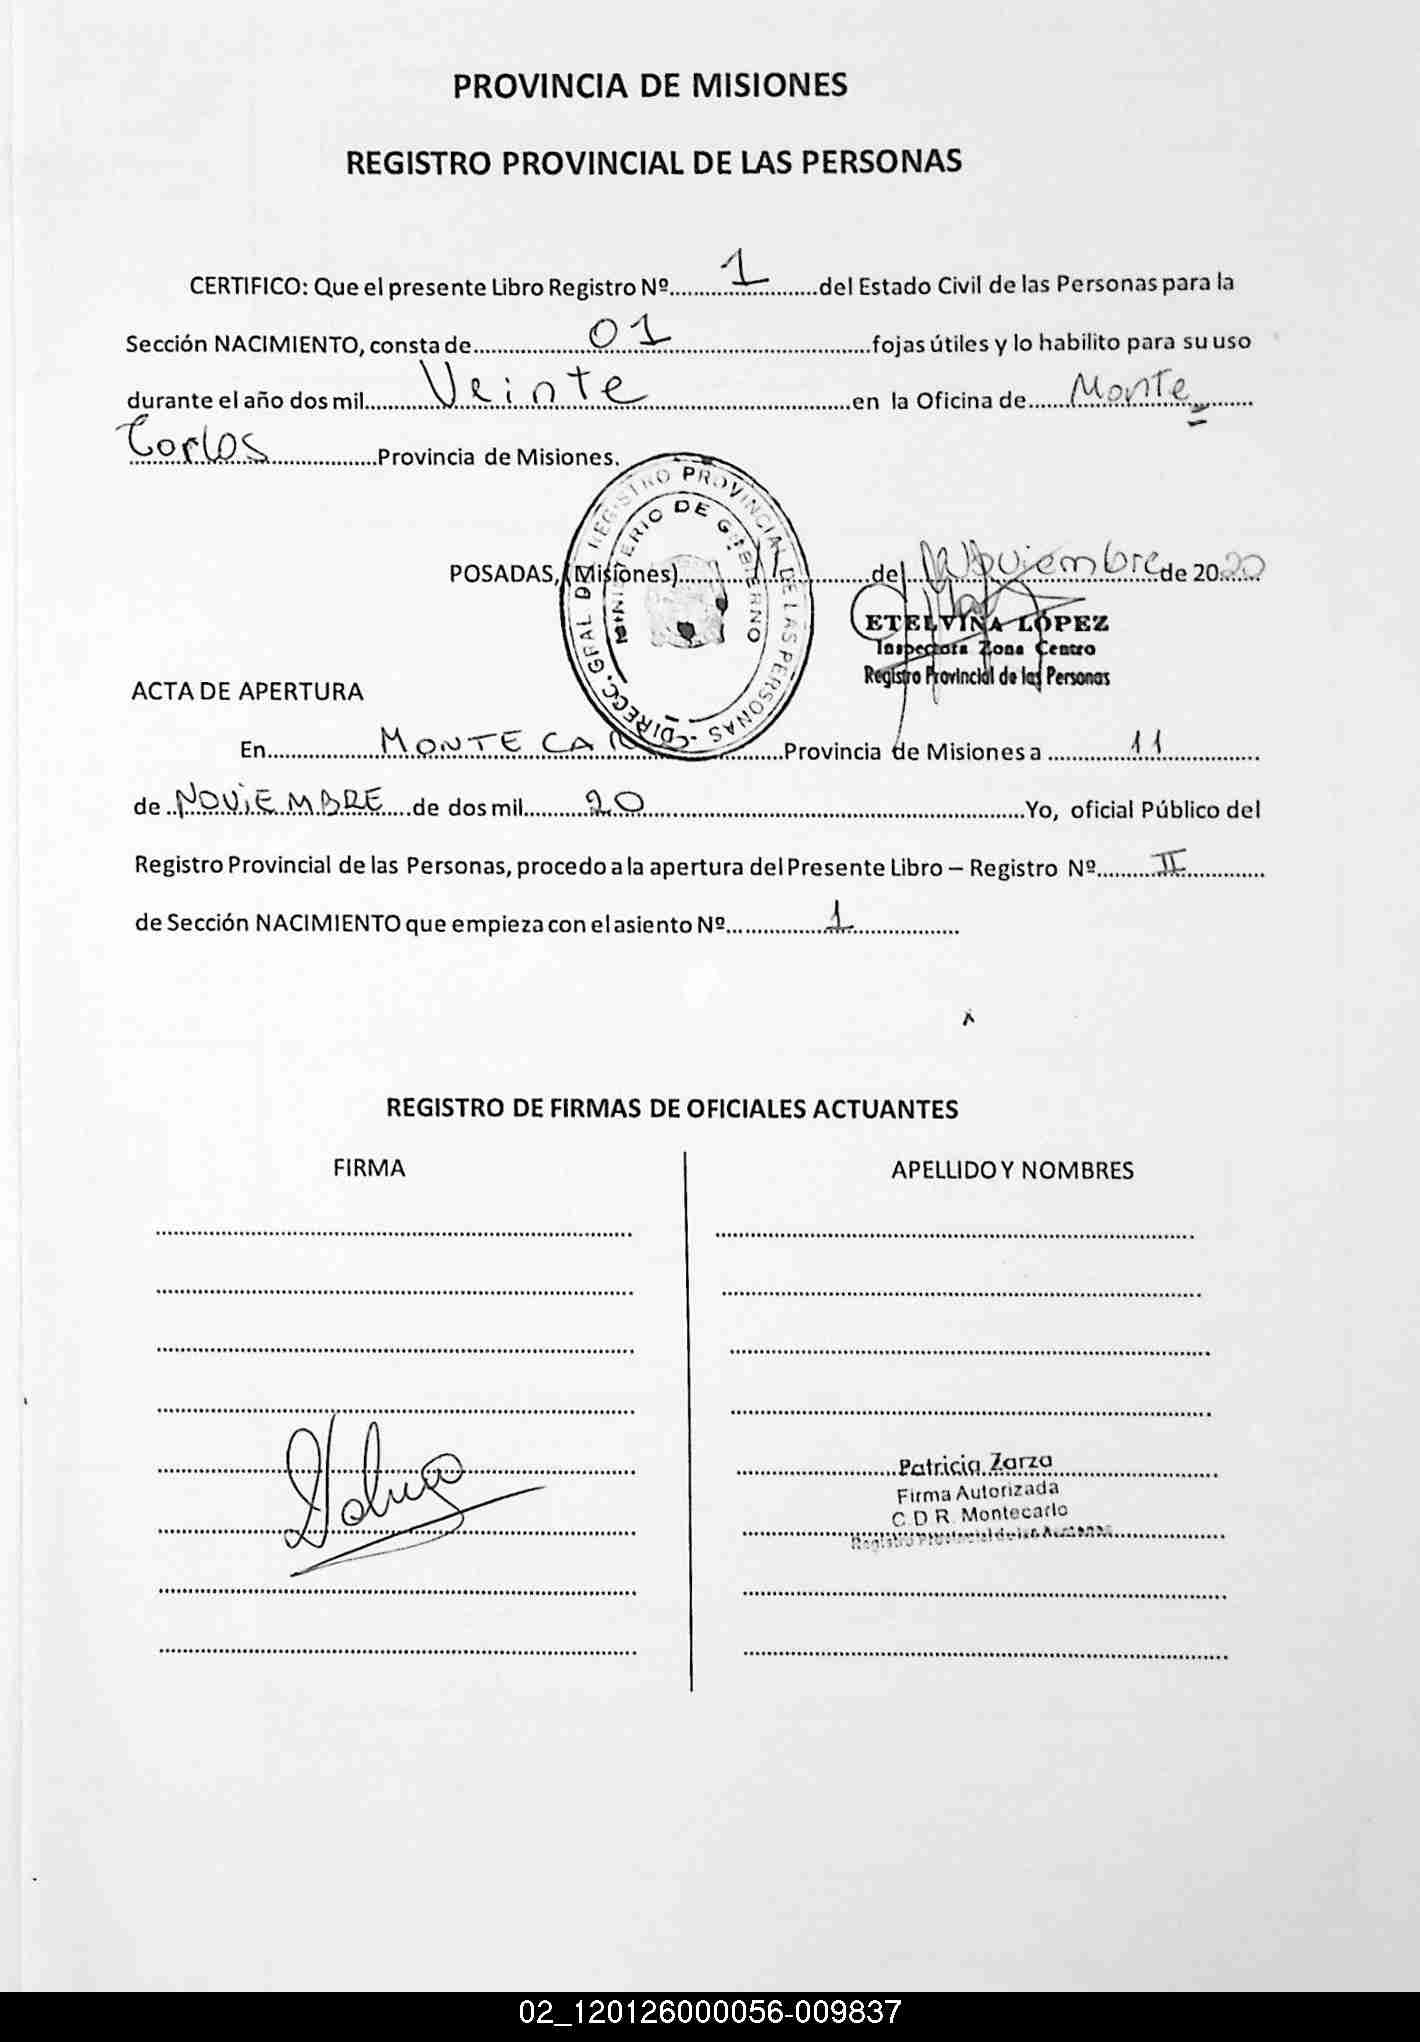 PROVINCIA DE MISIONES
REGISTRO PROVINCIAL DE LAS PERSONAS
CERTIFICO: Que el presente Libro Registro Nº.......1.......del Estado Civil de las Personas para la
Sección NACIMIENTO, consta de.......01.......fojas útiles y lo habilito para su uso
durante el año dos mil.......Veinte.......en la Oficina de.......Monte
Carlos.......Provincia de Misiones.
DIRECC. GRAL DEL REGISTRO PROVINCIAL DE LAS PERSONAS
MINISTERIO DE GOBIERNO
POSADAS, (Misiones).......11.......de.......Noviembre.de 2020
ETELVINA LÓPEZ
Inspectora Zona Centro
Registro Provincial de las Personas
ACTA DE APERTURA
En.......MONTECARLO.......Provincia de Misiones a.......11.......
de.NOVIEMBRE.de dos mil.......20.......Yo, oficial Público del
Registro Provincial de las Personas, procedo a la apertura del Presente Libro – Registro Nº.......II.......
de Sección NACIMIENTO que empieza con el asiento Nº.......1.......
REGISTRO DE FIRMAS DE OFICIALES ACTUANTES
FIRMA
APELLIDO Y NOMBRES
Patricia Zarza
Firma Autorizada
C.D.R. Montecarlo
Registro Provincial de las Personas
02_120126000056-009837